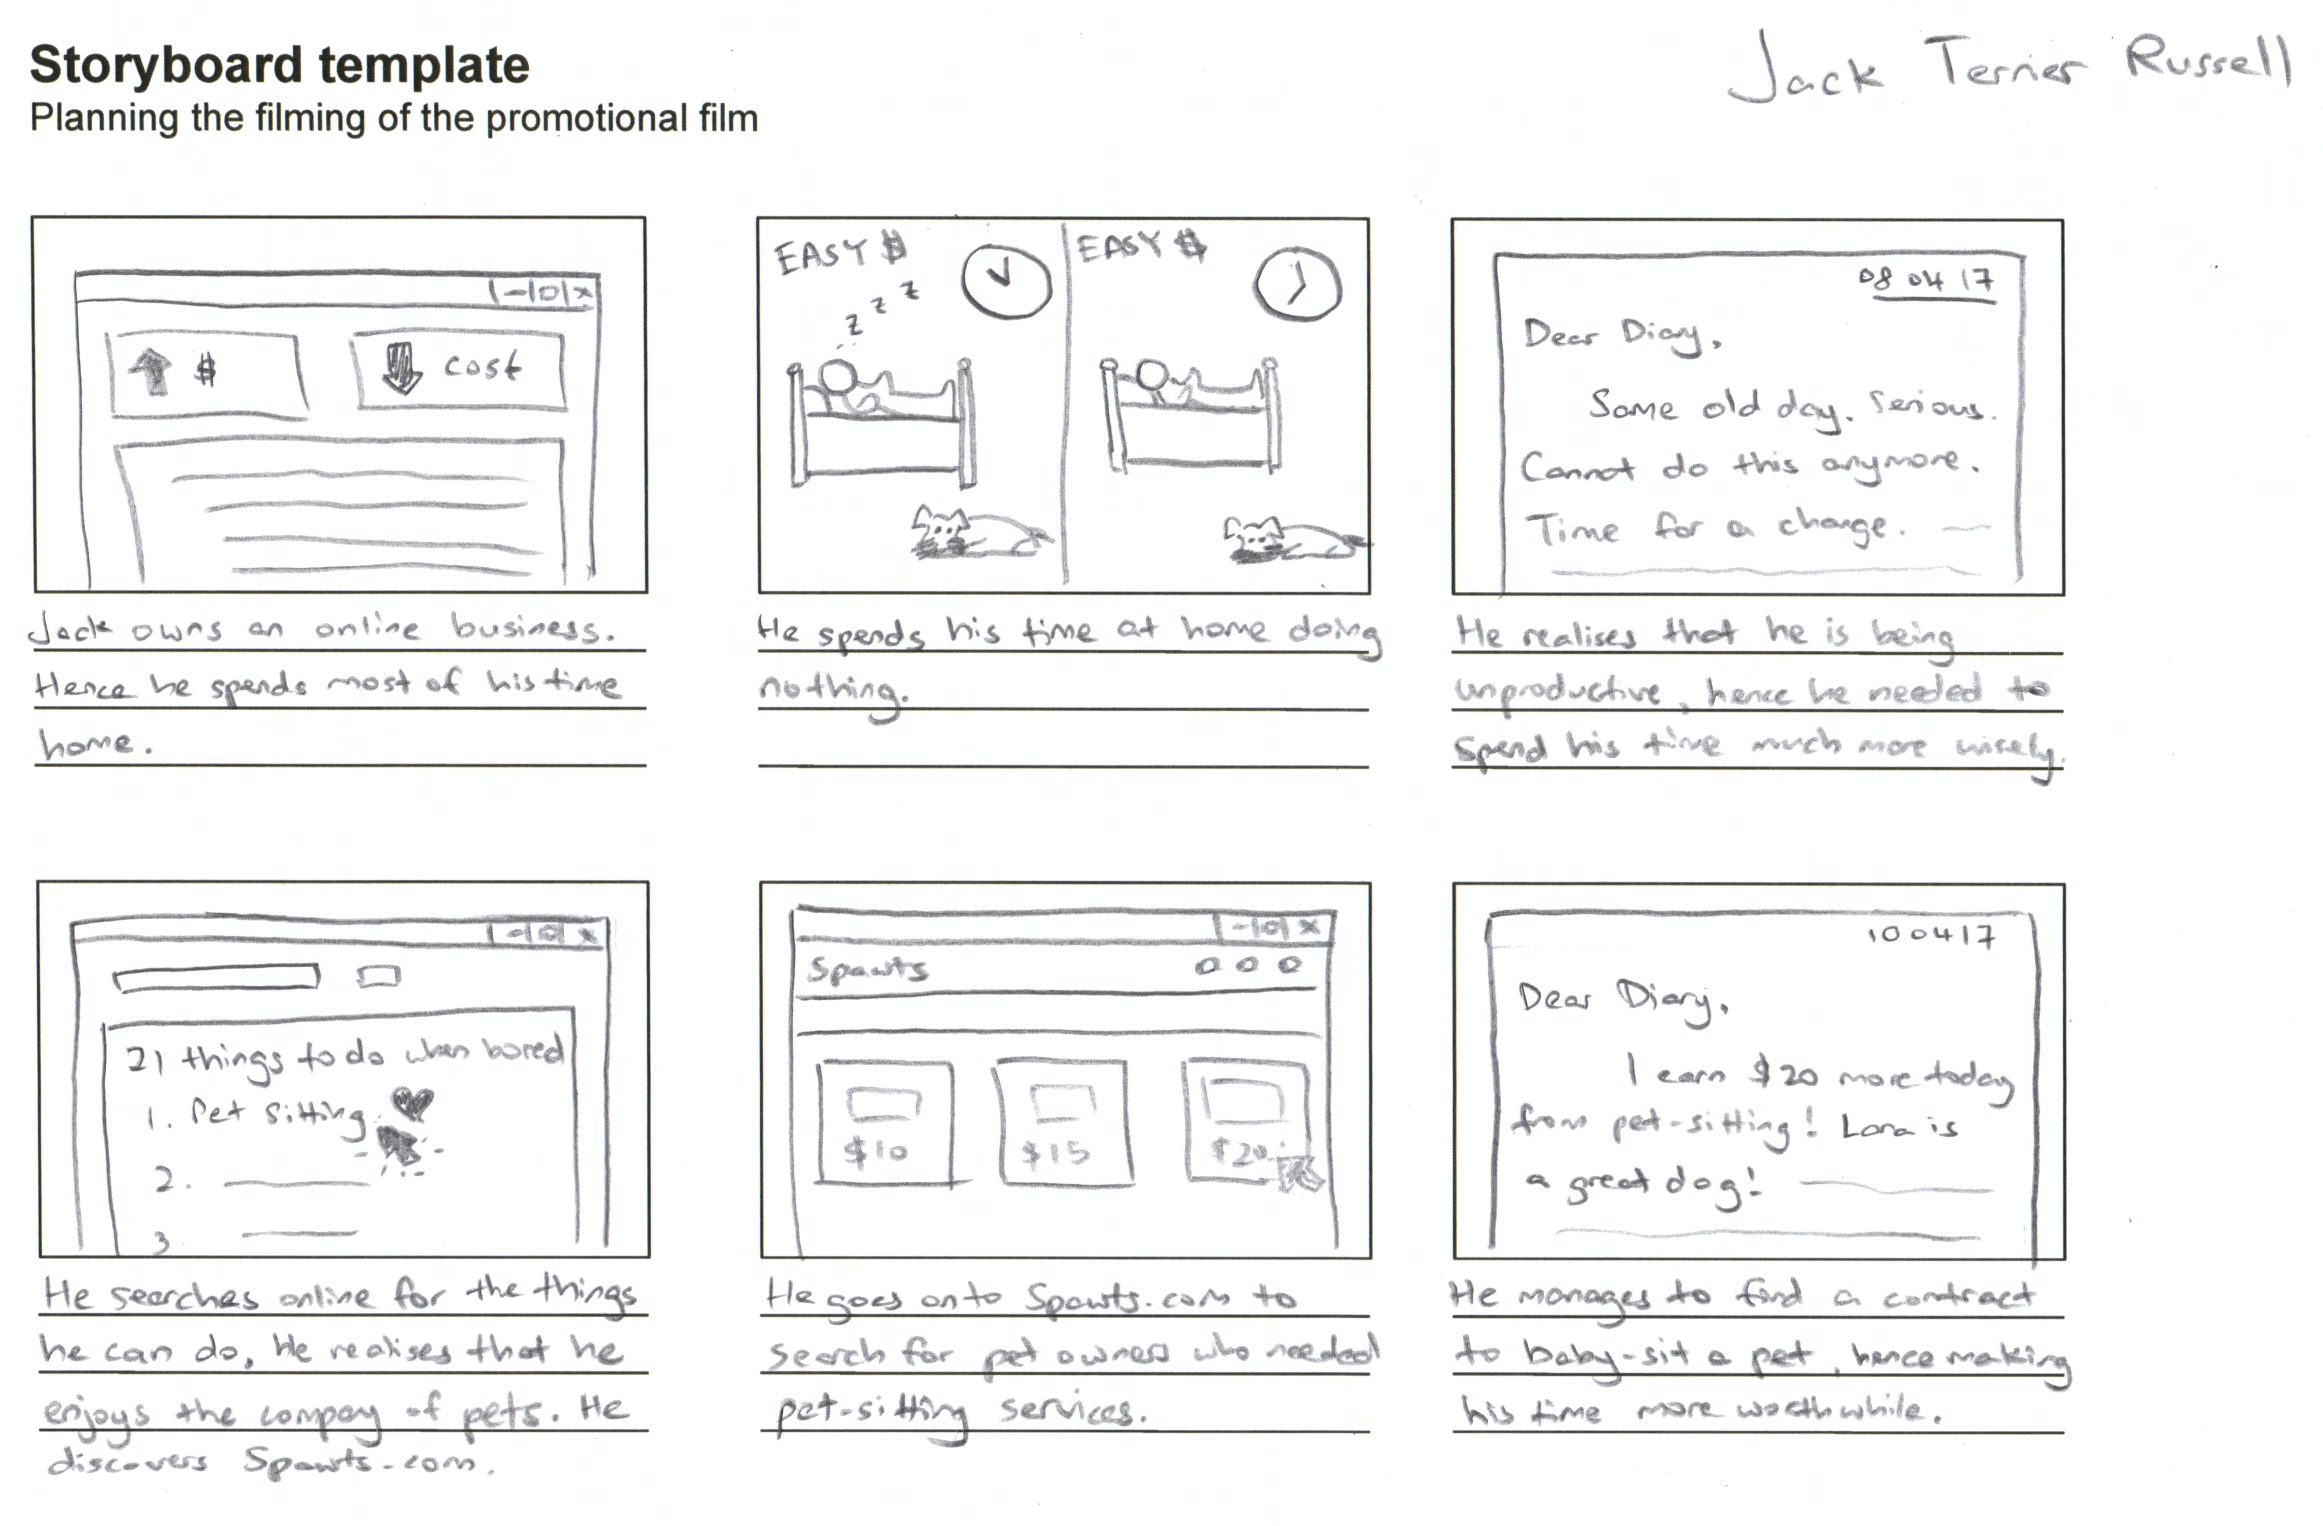 Storyboard template
Planning the filming of the promotional film
Jack Terrier Russell
$
cost
Jack owns an online business.
Hence he spends most of his time
home.
EASY $
z z z
EASY $
He spends his time at home doing
nothing.
08 04 17
Dear Diary,
Same old day. Serious.
Cannot do this anymore.
Time for a change.
He realises that he is being
unproductive, hence he needed to
spend his time much more wisely.
21 things to do when bored
1. Pet sitting
2.
3
He searches online for the things
he can do. He realises that he
enjoys the company of pets. He
discovers Spawts.com.
Spawts
$10
$15
$20
He goes onto Spawts.com to
search for pet owners who needed
pet-sitting services.
10 04 17
Dear Diary,
I earn $20 more today
from pet-sitting! Lana is
a great dog!
He manages to find a contract
to baby-sit a pet, hence making
his time more worthwhile.